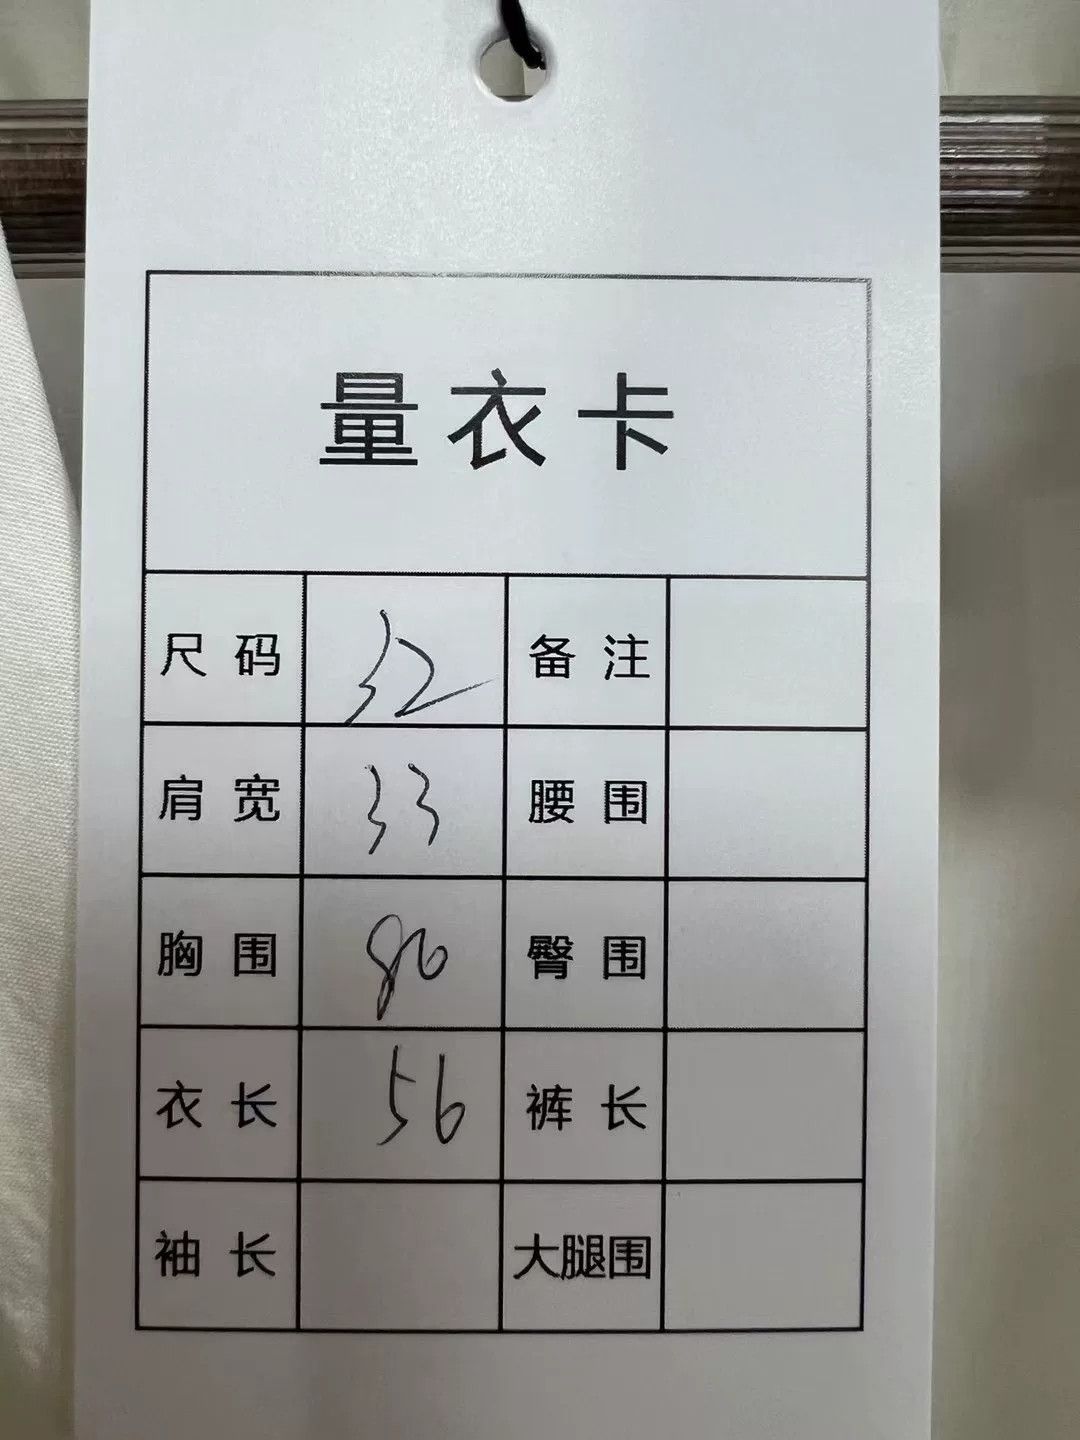 量衣卡
尺码 32 备注
肩宽 33 腰围
胸围 80 臀围
衣长 56 裤长
袖长 大腿围